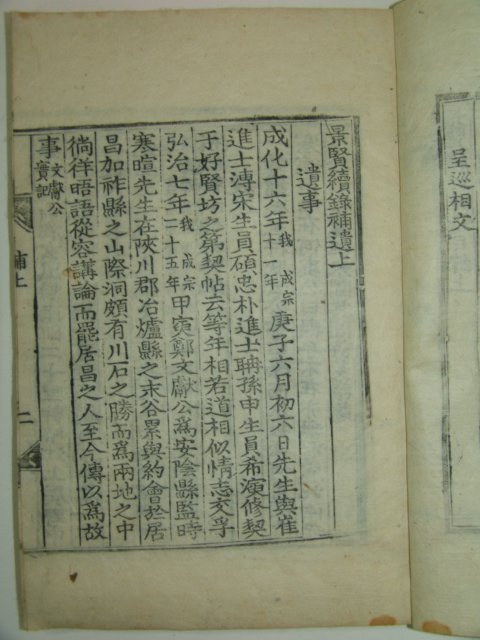 呈巡相文
景賢續錄補遺上
遺事
成化十六年我 成宗十一年庚子六月初六日先生與崔
進士溥宋生員碩忠朴進士聃孫申生員希演修契
于好賢坊之第契帖云等年相若道相似情志交孚
弘治七年我 成宗二十五年甲寅鄭文獻公爲安陰縣監時
寒暄先生在陜川郡冶爐縣之末谷累與約會於居
昌加祚縣之山際洞頗有川石之勝而爲兩地之中
徜徉晤語從容講論而罷居昌之人至今傳以爲故
事文獻公實記
補上